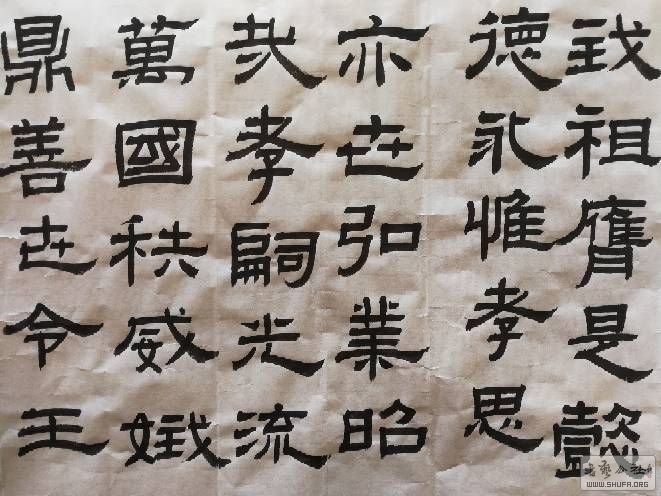 我祖膺是懿
德永惟孝思
亦世弘業昭
哉孝嗣光流
萬國秩威娥
鼎善世令王
书艺公社
WWW.SHUFA.ORG